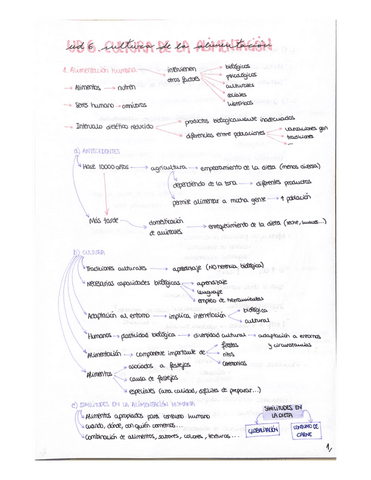 UD 6. CULTURA DE LA ALIMENTACIÓN
ud 6. cultura de la alimentacion
1. Alimentación humana → intervienen otros factores
biológicos
psicológicos
culturales
sociales
históricos
→ Alimentos → nutren
→ Seres humanos → omnívoros
→ Intervalo dietético reducido
productos biológicamente inadecuados
diferencias entre poblaciones
tradiciones
...
a) ANTECEDENTES
Hace 10000 años → agricultura → empeoramiento de la dieta (menos diversa)
dependiendo de la zona → diferentes productos
permite alimentar a mucha gente → ↑ población
Más tarde → domesticación de animales → enriquecimiento de la dieta (leche, huevos...)
b) CULTURA
Tradiciones culturales → aprendizaje (NO herencia biológica)
Necesarias capacidades biológicas
aprendizaje
lenguaje
empleo de herramientas
Adaptación al entorno → implica interrelación
biológica
cultural
Humanos → plasticidad biológica → diversidad cultural → adaptación a entornos y circunstancias
Alimentación → componente importante de
fiestas
ritos
ceremonias
Alimentos
asociados a festejos
causa de festejos
especiales (alta calidad, difíciles de preparar...)
c) SIMILITUDES EN LA ALIMENTACIÓN HUMANA
Alimentos apropiados para consumo humano
cuándo, dónde, con quién comemos...
Combinación de alimentos, sabores, colores, texturas...
SIMILITUDES EN LA DIETA
GLOBALIZACIÓN
CONSUMO DE CARNE
1,